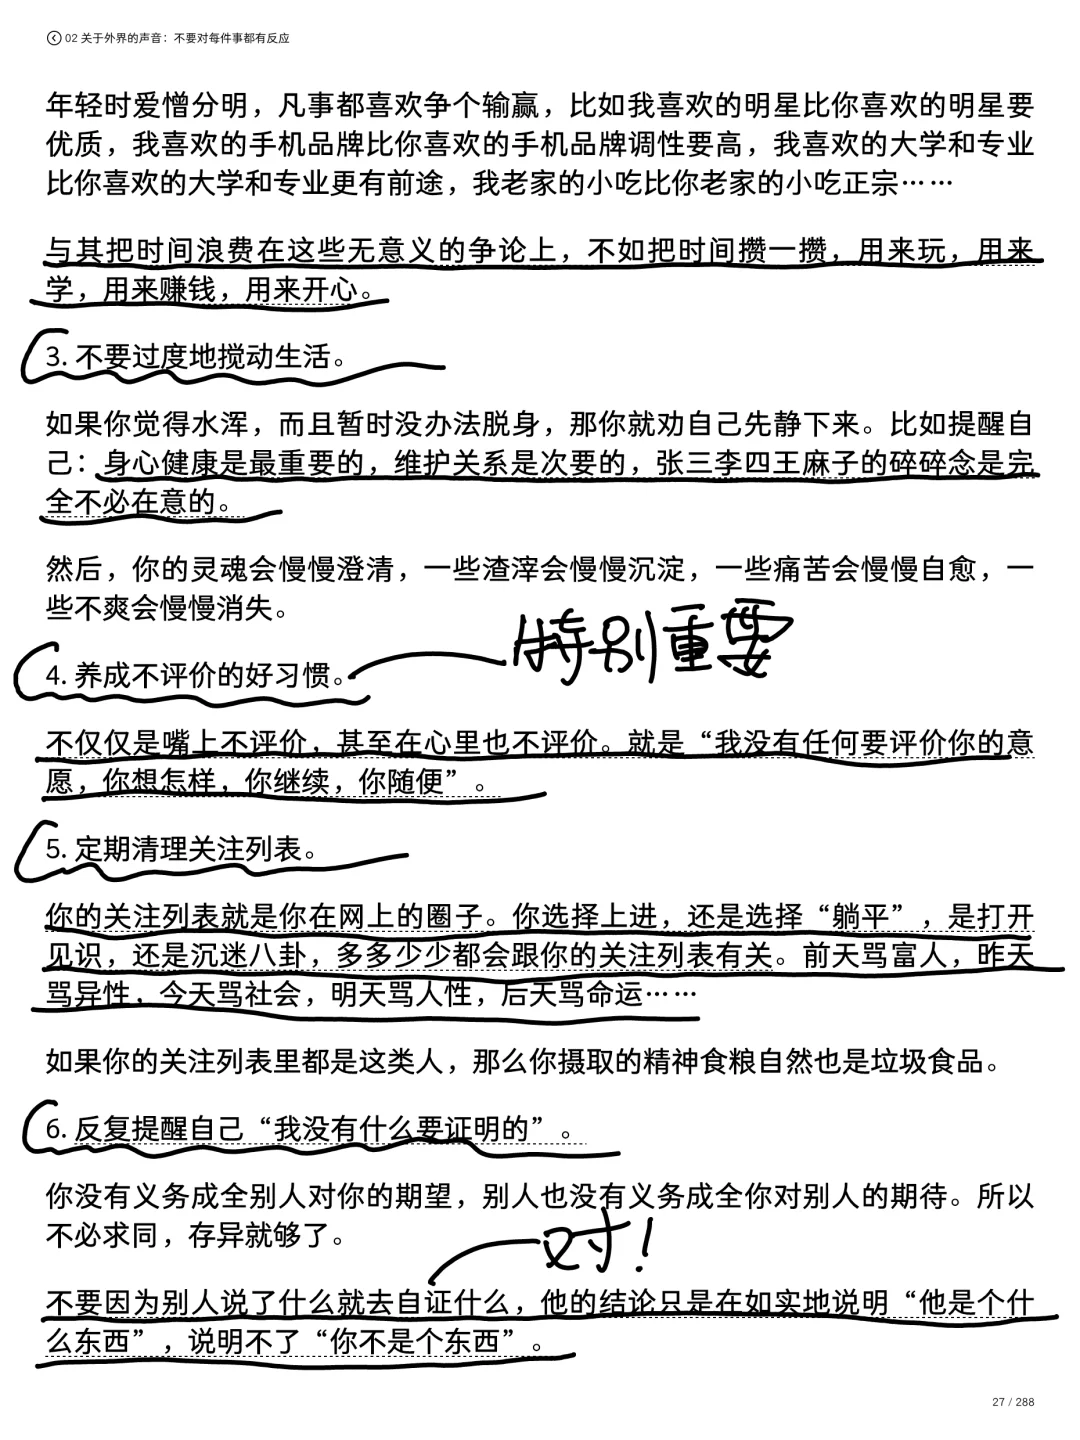 02 关于外界的声音：不要对每件事都有反应
年轻时爱憎分明，凡事都喜欢争个输赢，比如我喜欢的明星比你喜欢的明星要
优质，我喜欢的手机品牌比你喜欢的手机品牌调性要高，我喜欢的大学和专业
比你喜欢的大学和专业更有前途，我老家的小吃比你老家的小吃正宗……
与其把时间浪费在这些无意义的争论上，不如把时间攒一攒，用来玩，用来
学，用来赚钱，用来开心。
3. 不要过度地搅动生活。
如果你觉得水浑，而且暂时没办法脱身，那你就劝自己先静下来。比如提醒自
己：身心健康是最重要的，维护关系是次要的，张三李四王麻子的碎碎念是完
全不必在意的。
然后，你的灵魂会慢慢澄清，一些渣滓会慢慢沉淀，一些痛苦会慢慢自愈，一
些不爽会慢慢消失。
特别重要
4. 养成不评价的好习惯。
不仅仅是嘴上不评价，甚至在心里也不评价。就是“我没有任何要评价你的意
愿，你想怎样，你继续，你随便”。
5. 定期清理关注列表。
你的关注列表就是你在网上的圈子。你选择上进，还是选择“躺平”，是打开
见识，还是沉迷八卦，多多少少都会跟你的关注列表有关。前天骂富人，昨天
骂异性，今天骂社会，明天骂人性，后天骂命运……
如果你的关注列表里都是这类人，那么你摄取的精神食粮自然也是垃圾食品。
6. 反复提醒自己“我没有什么要证明的”。
你没有义务成全别人对你的期望，别人也没有义务成全你对别人的期待。所以
不必求同，存异就够了。
对！
不要因为别人说了什么就去自证什么，他的结论只是在如实地说明“他是个什
么东西”，说明不了“你不是个东西”。
27 / 288